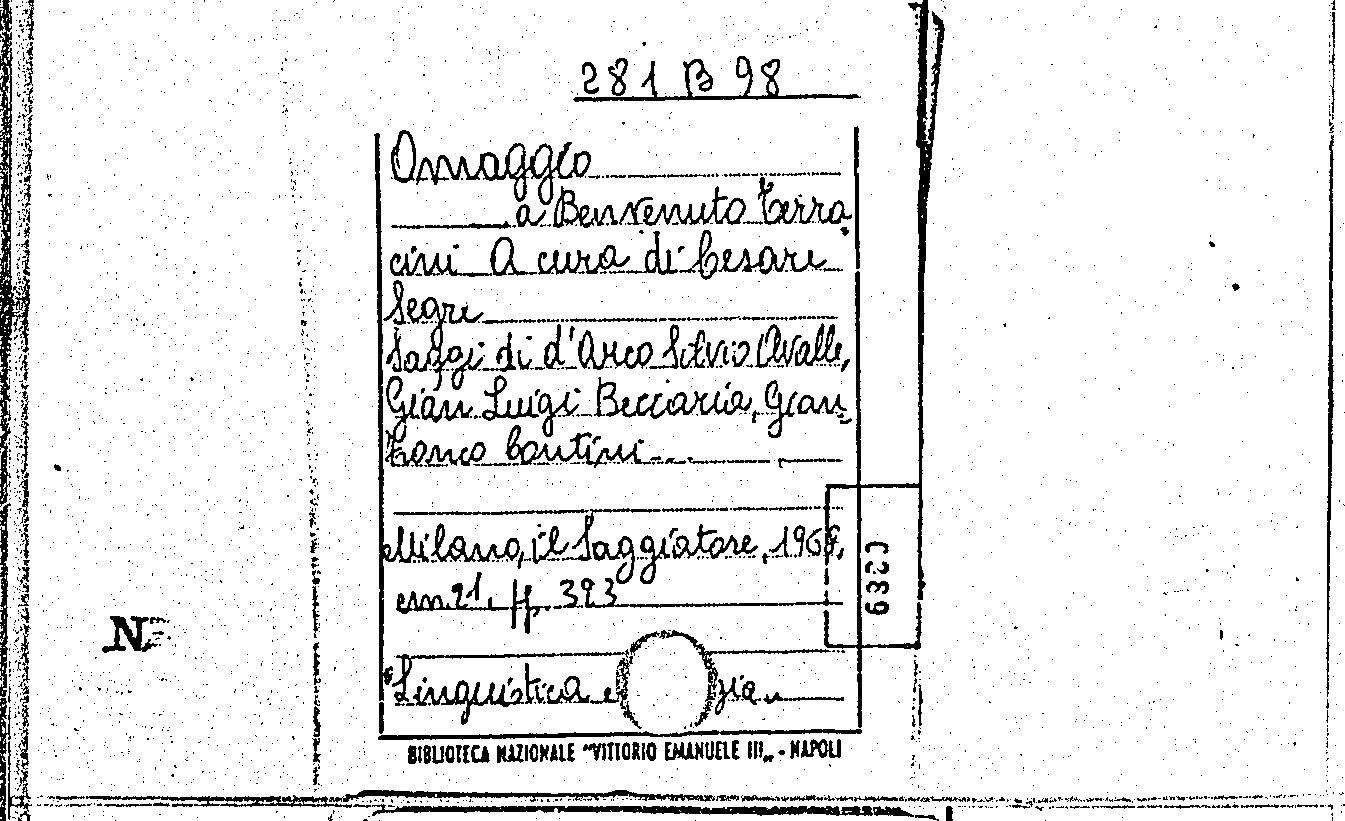 281 B 98
Omaggio
a Benvenuto Terra
cini A cura di Cesare
Segre
Saggi di d'Arco Silvio Avalle,
Gian Luigi Beccaria, Gian
franco Contini...
Milano, il Saggiatore, 1968,
cm. 21, pp. 393
"Linguistica e
6380
N
BIBLIOTECA NAZIONALE "VITTORIO EMANUELE III„ - NAPOLI